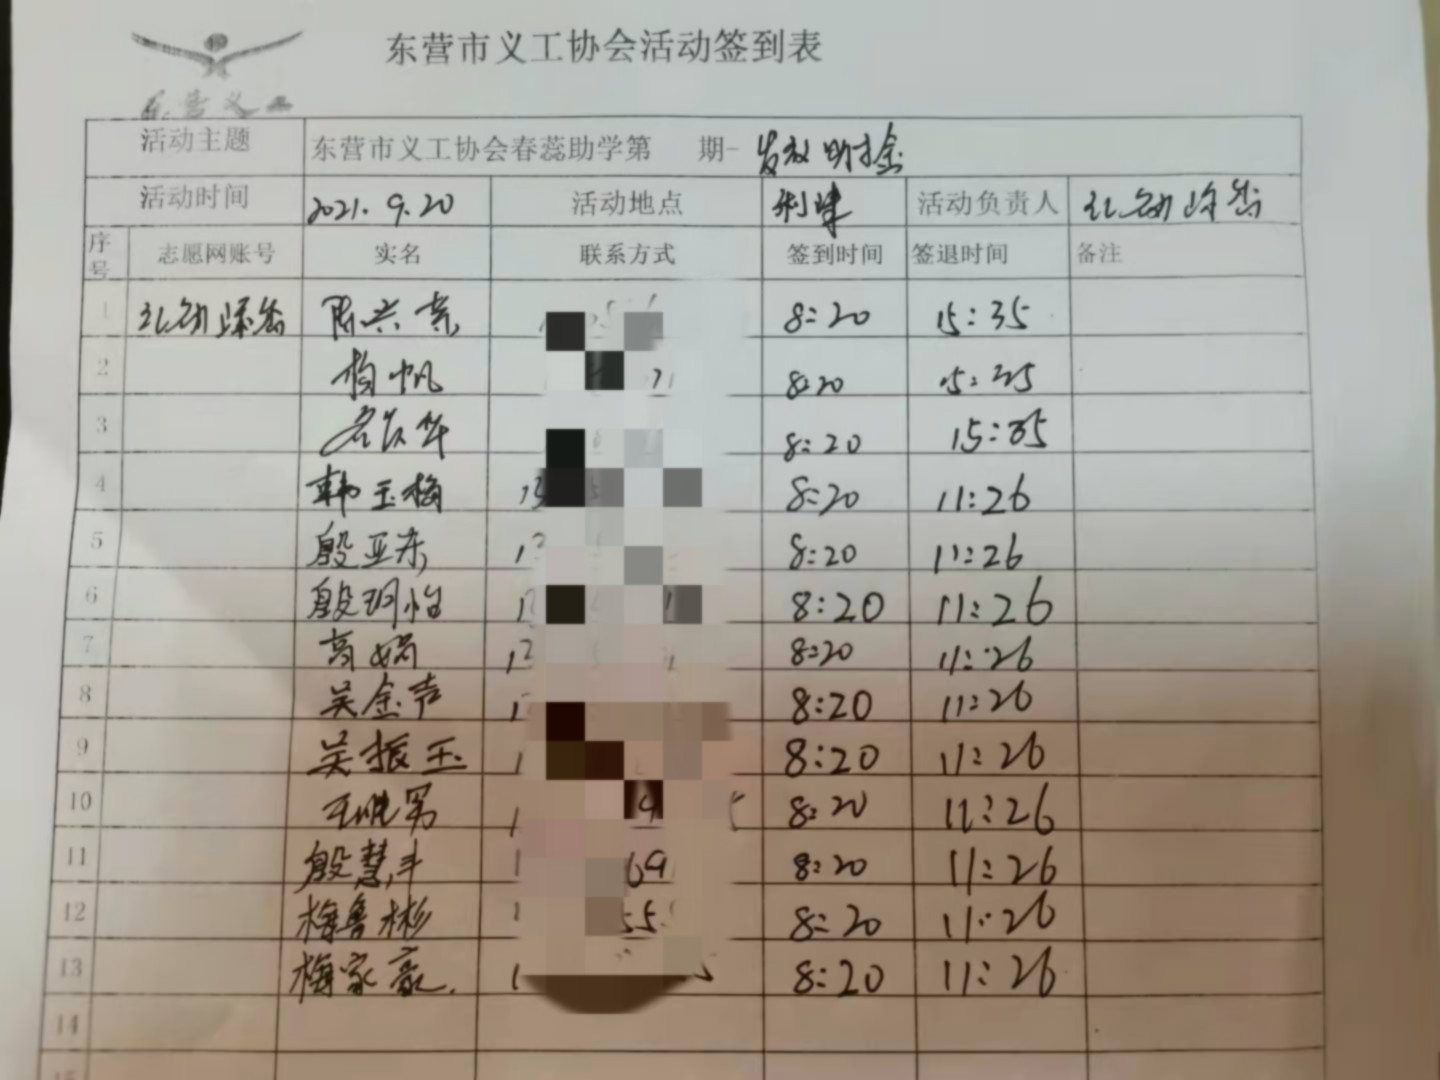 东营市义工协会活动签到表
东营义工
活动主题 东营市义工协会春蕊助学第 期- 发放助学金
活动时间 2021.9.20 活动地点 利津 活动负责人
序号 志愿网账号 实名 联系方式 签到时间 签退时间 备注
1 8:20 15:35
2 杨帆 8:20 15:35
3 8:20 15:35
4 韩玉梅 13 8:20 11:26
5 殷亚东 13 8:20 11:26
6 殷玥怡 8:20 11:26
7 高娟 8:20 11:26
8 吴金声 8:20 11:26
9 吴振玉 8:20 11:26
10 8:20 11:26
11 殷慧 69 8:20 11:26
12 梅鲁彬 55 8:20 11:26
13 梅家豪. 8:20 11:26
14
15